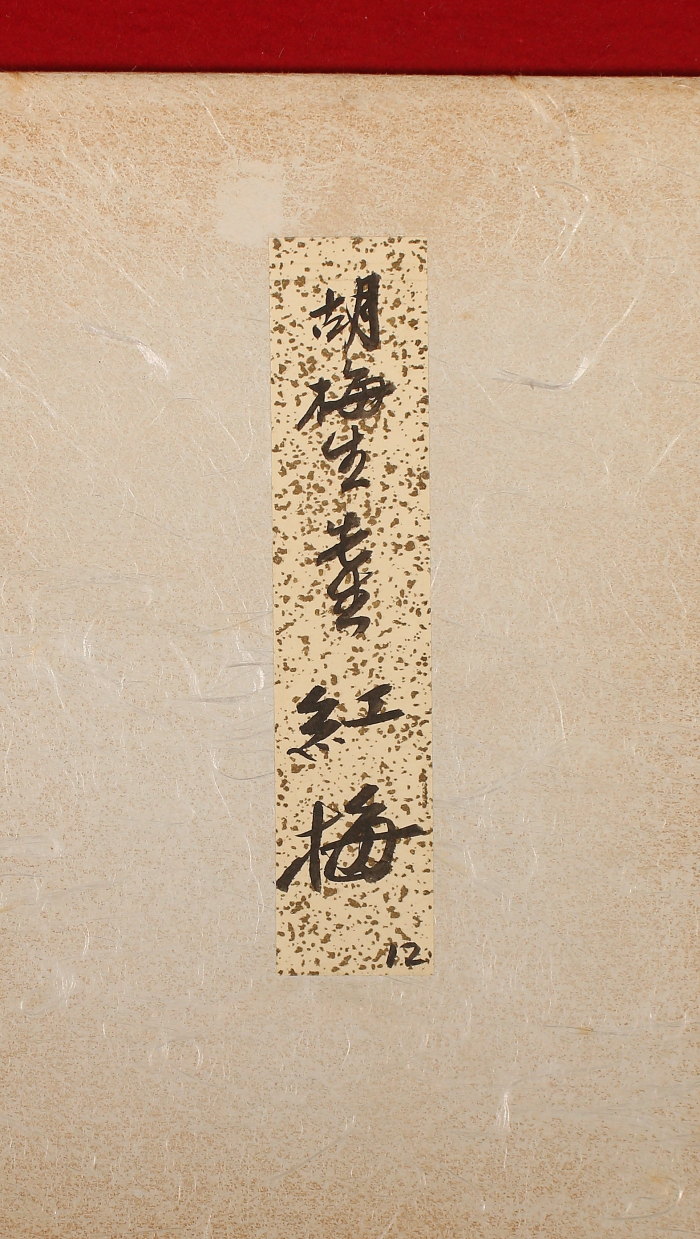 胡梅生 紅梅
12